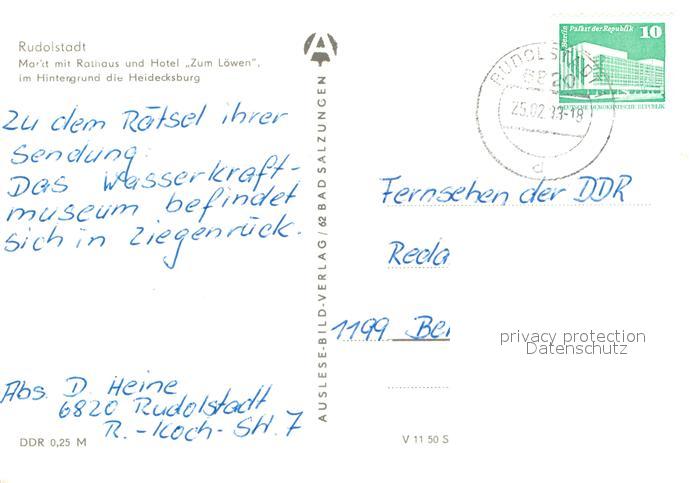 Rudolstadt
Markt mit Rathaus und Hotel „Zum Löwen",
im Hintergrund die Heidecksburg
Zu dem Rätsel ihrer
Sendung:
Das Wasserkraft-
museum befindet
sich in Ziegenrück.
Abs. D. Heine
6820 Rudolstadt
R.-Koch-Str. 7
DDR 0,25 M
AUSLESE-BILD-VERLAG / 62 BAD SALZUNGEN
Berlin Palast der Republik 10
DEUTSCHE DEMOKRATISCHE REPUBLIK
RUDOLSTADT
6820
25.02.83-18
d
Fernsehen der DDR
Reda
1199 Ber
privacy protection
Datenschutz
V 11 50 S